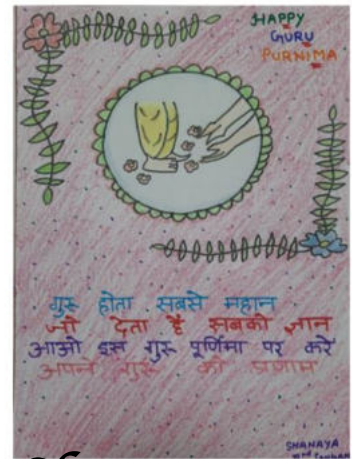 HAPPY
GURU
PURNIMA
गुरु होता सबसे महान
जो देता है सबको ज्ञान
आओ इस गुरु पूर्णिमा पर करें
अपने गुरु को प्रणाम
SHANAYA